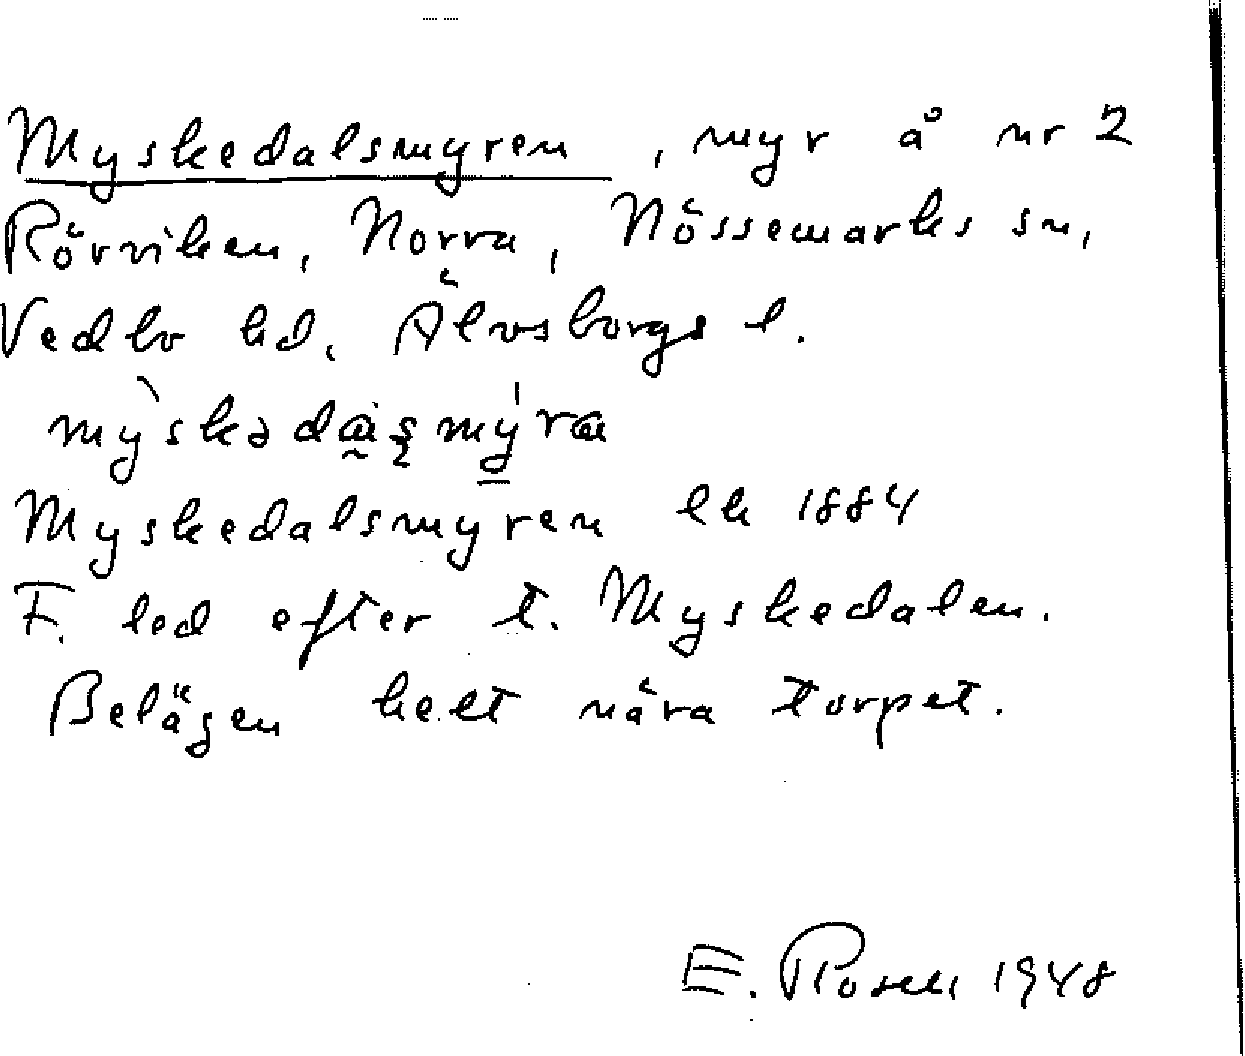 Myskedalsmyren, myr å nr 2
Rörviken, Norra, Nössemarks sn,
Vedbo hd, Älvsborgs l.
Myskedalsmyren ek 1884
F. led efter t. Myskedalen.
Belägen helt nära torpet.
E. Rosell 1948